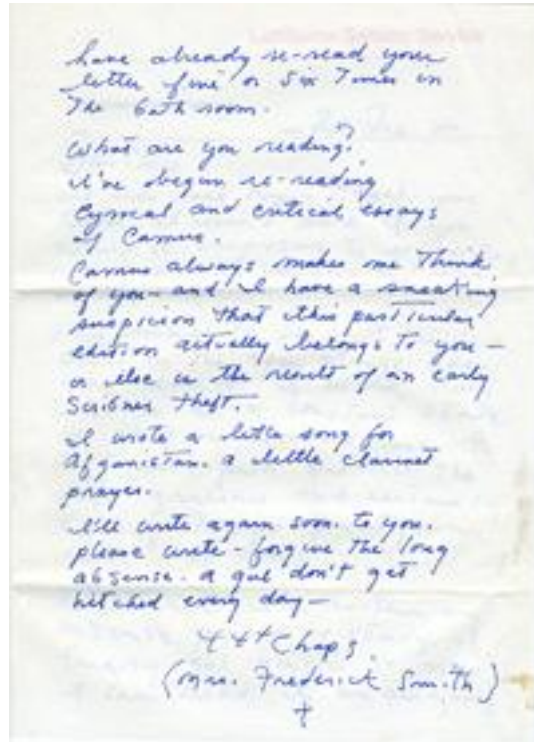 have already re-read your
letter five or six Times in
The bathroom.
What are you reading?
I've begun re-reading
Lyrical and critical essays
of Camus.
Camus always makes me Think
of you - and I have a sneaking
suspicion That this particular
edition actually belongs To you —
or else is the result of an early
Scribner Theft.
I wrote a little song for
Afganistan. a little clarinet
prayer.
I'll write again soon. to you.
please write - forgive The long
absense. a gal don't get
hitched every day —
Chaps
(Mrs. Frederick Smith)